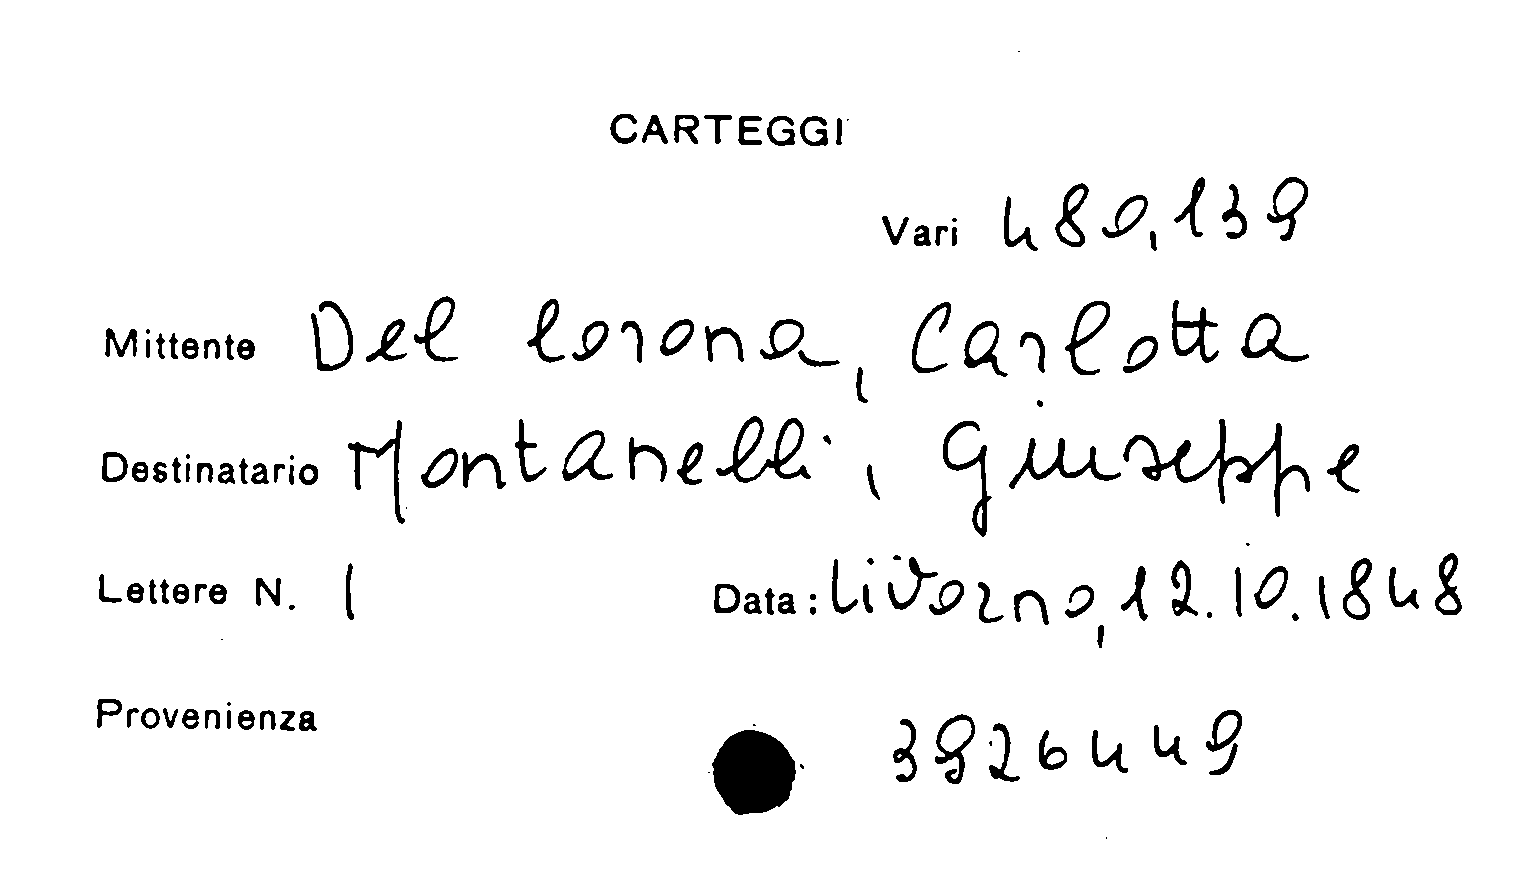 CARTEGGI
Vari 480,139
Mittente Del Corona, Carlotta
Destinatario Montanelli, Giuseppe
Lettere N. 1 Data: Livorno, 12.10.1848
Provenienza
3926449